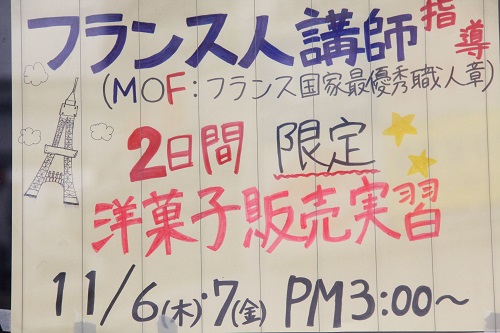 フランス人講師指導
(MOF:フランス国家最優秀職人章)
2日間 限定
洋菓子販売実習
11/6(木)・7(金) PM3:00〜